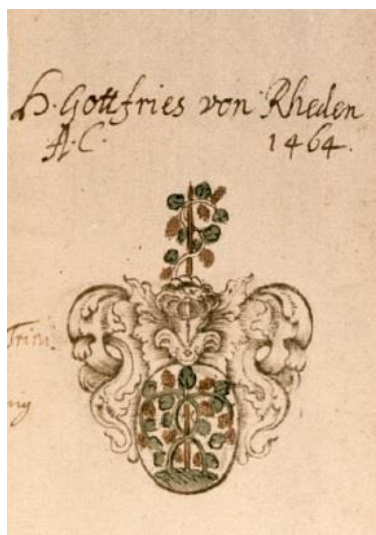 H. Gottfries von Rheden
A. C. 1464.